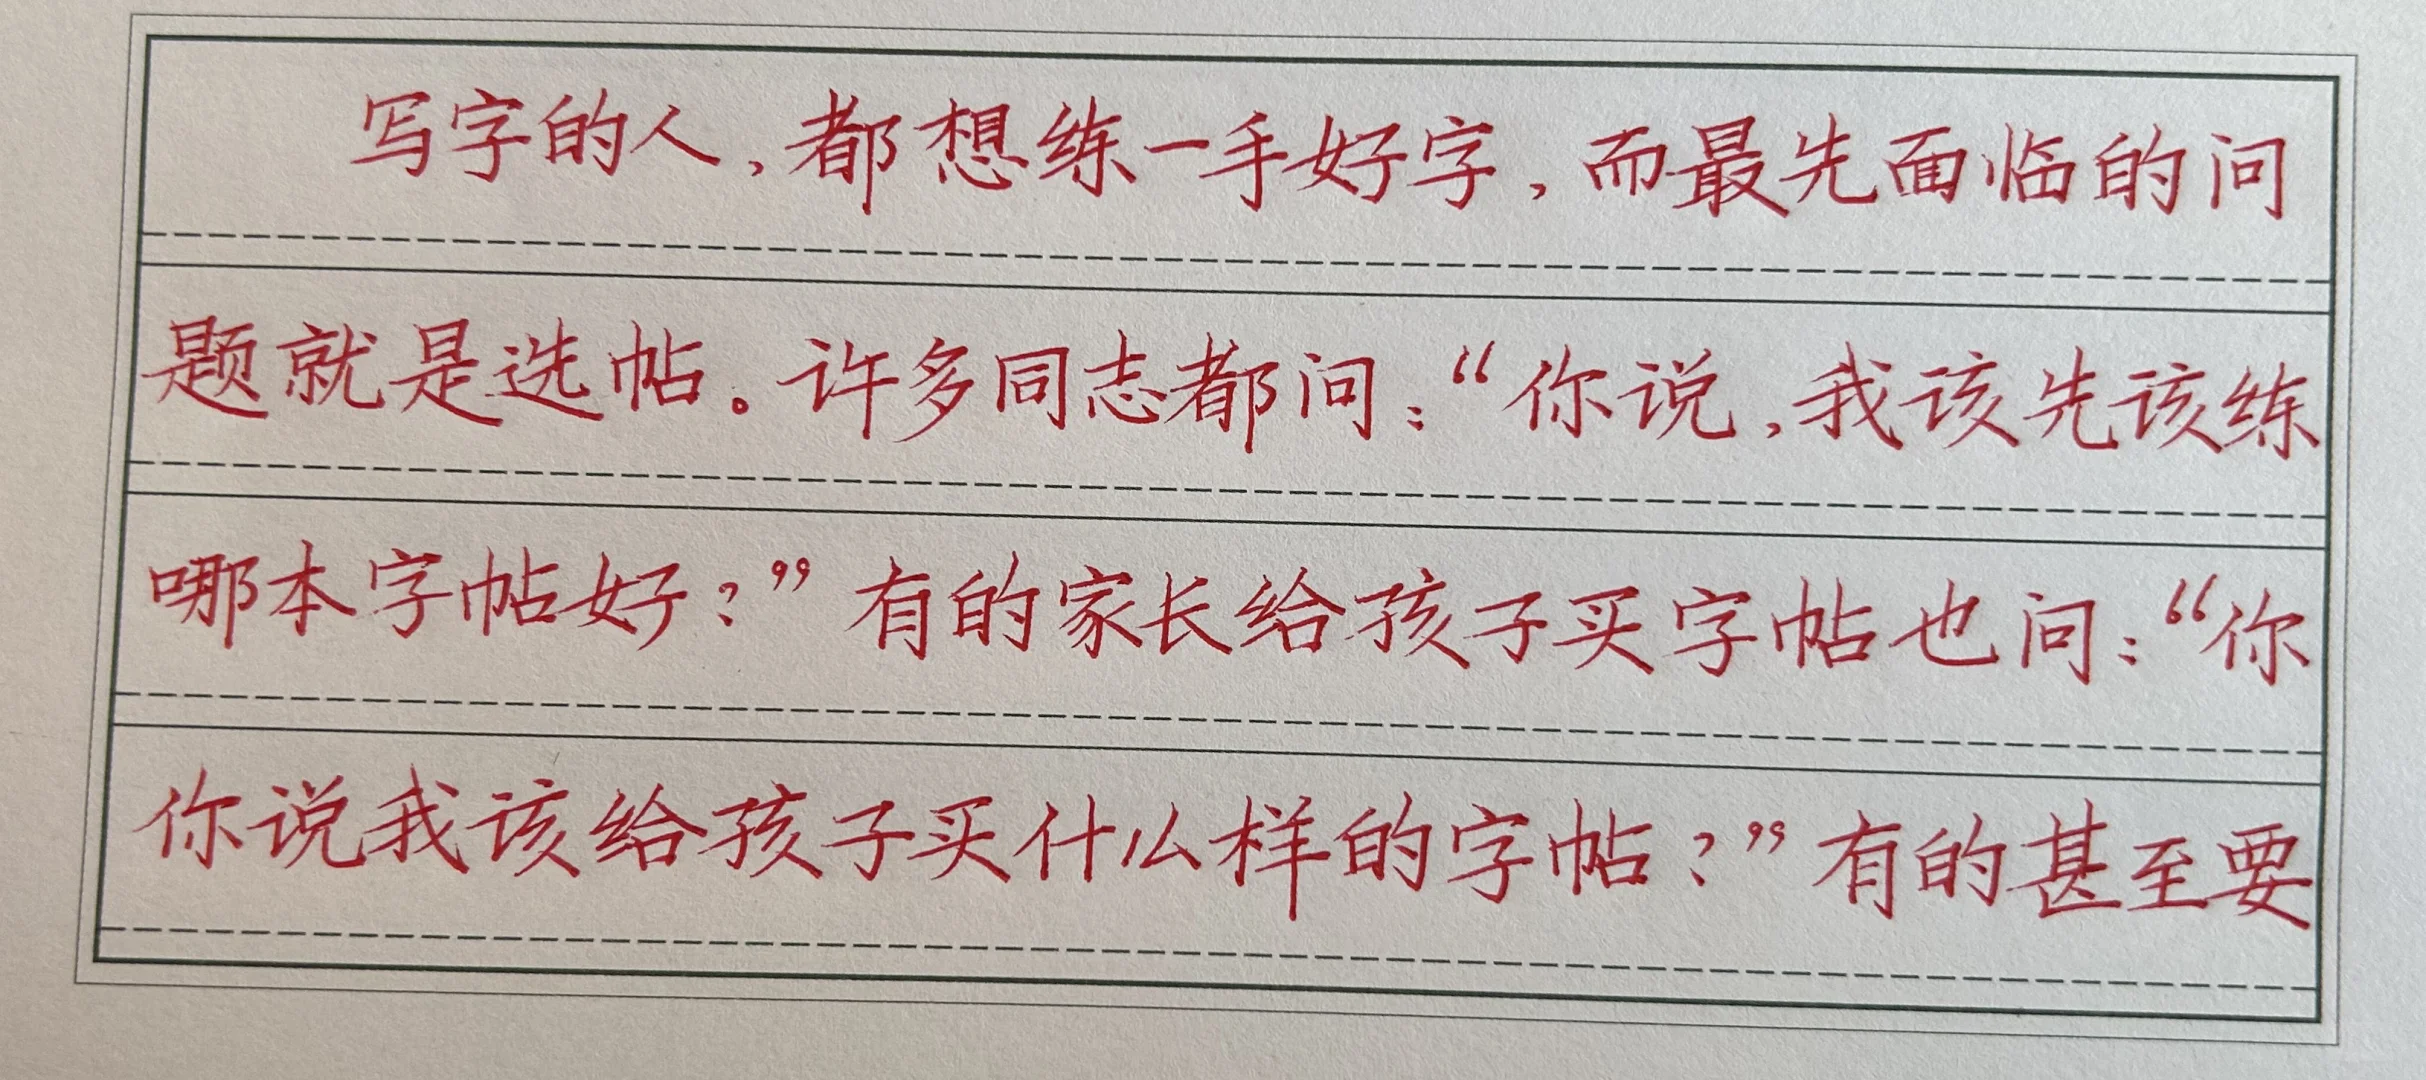 写字的人,都想练一手好字,而最先面临的问
题就是选帖。许多同志都问:“你说,我该先该练
哪本字帖好?”有的家长给孩子买字帖也问:“你
你说我该给孩子买什么样的字帖?”有的甚至要